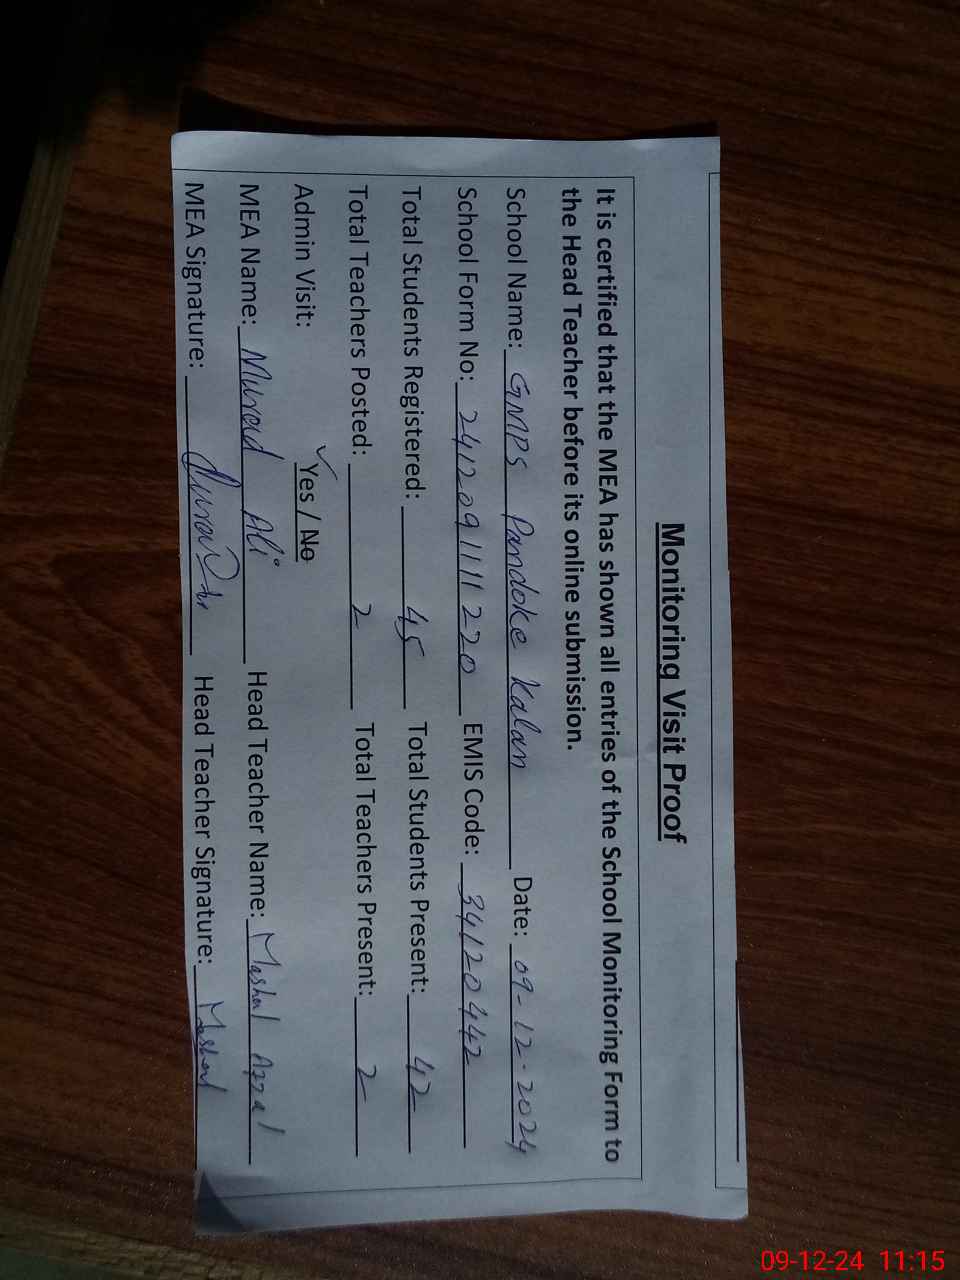 Monitoring Visit Proof
It is certified that the MEA has shown all entries of the School Monitoring Form to
the Head Teacher before its online submission.
School Name: GMPS Pandoke Kalan Date: 09-12-2024
School Form No: 241209111220 EMIS Code: 34120442
Total Students Registered: 45 Total Students Present: 42
Total Teachers Posted: 2 Total Teachers Present: 2
Admin Visit: Yes / No
MEA Name: Murad Ali Head Teacher Name: Mashal
MEA Signature: Head Teacher Signature: Mashal
09-12-24 11:15